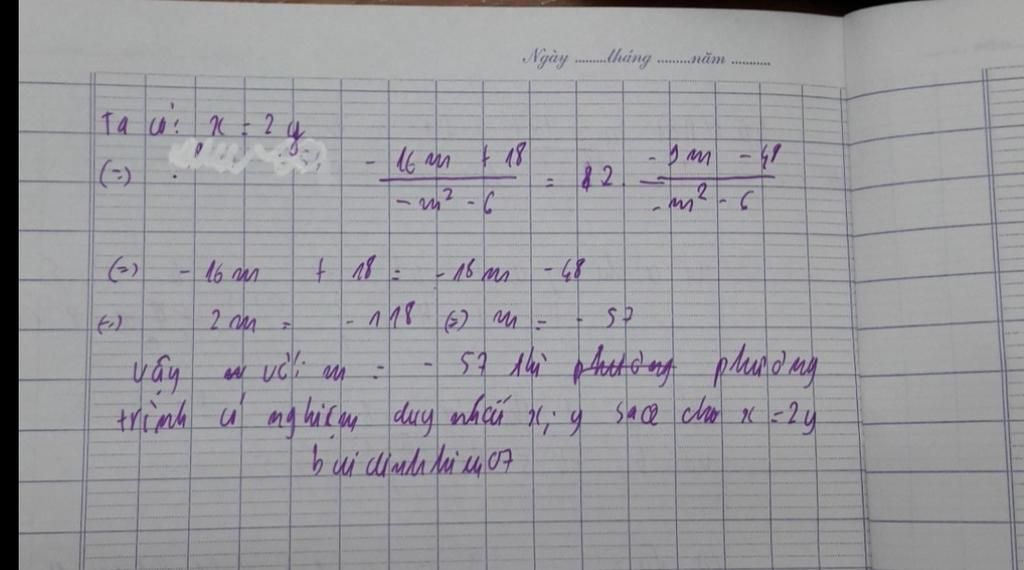 Ngày .........tháng .........năm ...........
Ta có: x = 2y
(=) - 16m + 18 / -m² - 6 = 2. -9m - 48 / -m² - 6
(=) - 16m + 18 = - 18m - 48
(=) 2m = - 118 (=) m = - 57
Vậy với m = - 57 thì phương
trình có nghiệm duy nhất x; y sao cho x = 2y